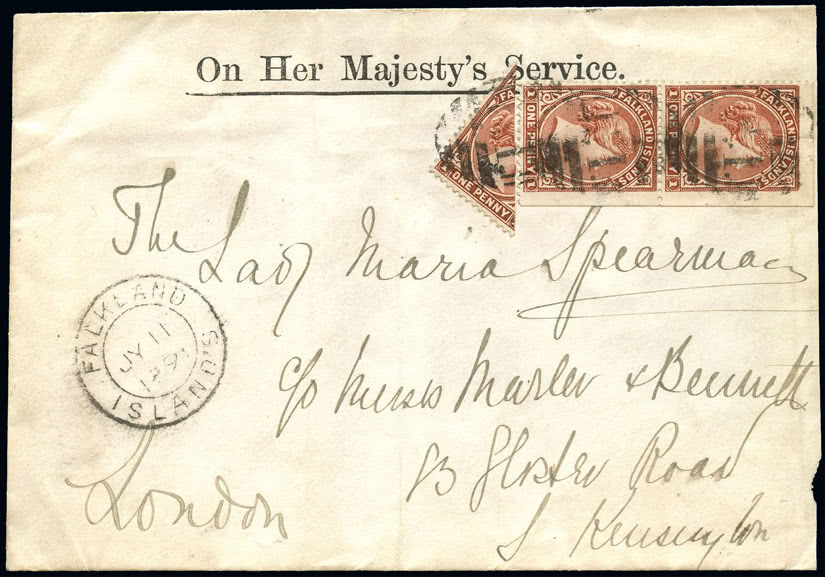 On Her Majesty's Service.
FALKLAND ISLANDS
ONE PENNY
FALKLAND ISLANDS
ONE PENNY
FALKLAND
ONE PENNY
The Lady Maria Spearman
FALKLAND ISLANDS
JY 11
c/o Messrs Marler & Bennett
Gloster Road
S. Kensington
London